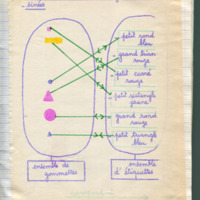 petit rond
bleu
rouge
petit carré
rouge
petit rectangle
grand rond
rouge
petit triangle
bleu
ensemble de
gommettes
ensemble
d'étiquettes